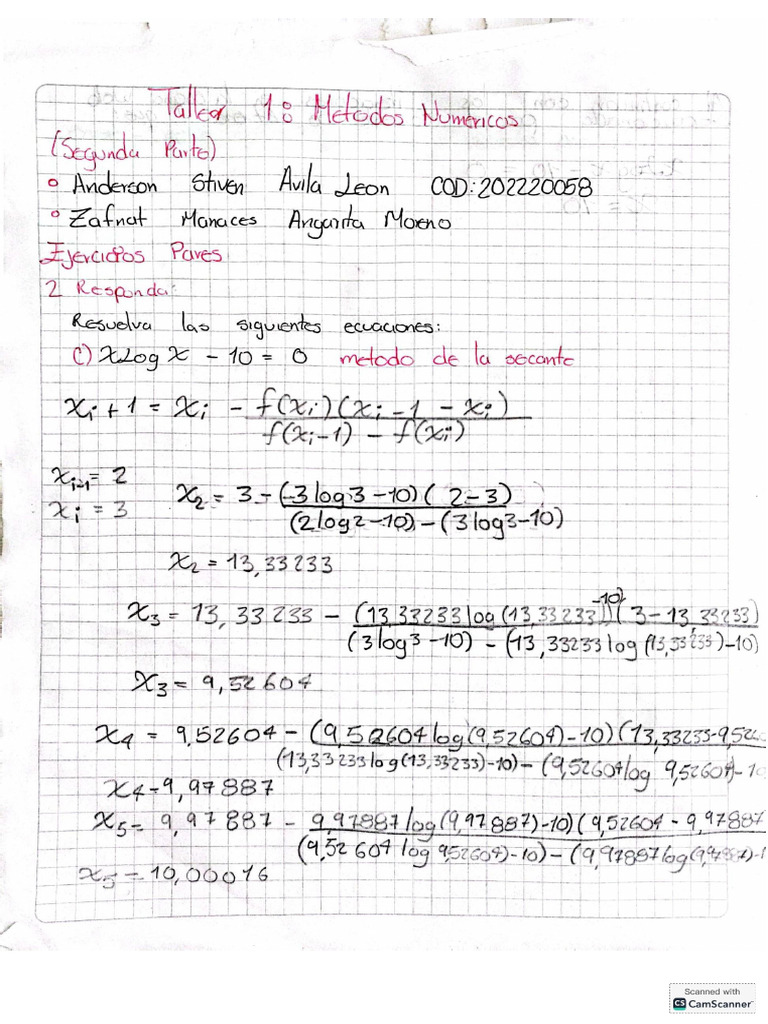 Taller 1: Metodos Numericos
(Segunda Parte)
o Anderson Stiven Avila Leon COD: 202220058
o Zafnat Manaces Angarita Moreno
Ejercicios Pares
2 Responda:
Resuelva las siguientes ecuaciones:
C) xLog x - 10 = 0 metodo de la secante
xi + 1 = xi - f(xi)(xi-1 - xi) / f(xi-1) - f(xi)
xi-1 = 2
xi = 3
x2 = 3 - (3log3-10)(2-3) / (2log2-10)-(3log3-10)
x2 = 13,33233
x3 = 13,33233 - (13,33233log(13,33233)-10)(3-13,33233) / (3log3-10) - (13,33233log(13,33233)-10)
x3 = 9,52604
x4 = 9,52604 - (9,52604log(9,52604)-10)(13,33233-9,5260 / (13,33233log(13,33233)-10)-(9,52604log 9,52604)-10
x4 = 9,97887
x5 = 9,97887 - 9,97887log(9,97887)-10)(9,52604 - 9,97887 / (9,52604 log 9,52604)-10)-(9,97887log(9,97887)-1
x5 = 10,00016
Scanned with
CS CamScanner